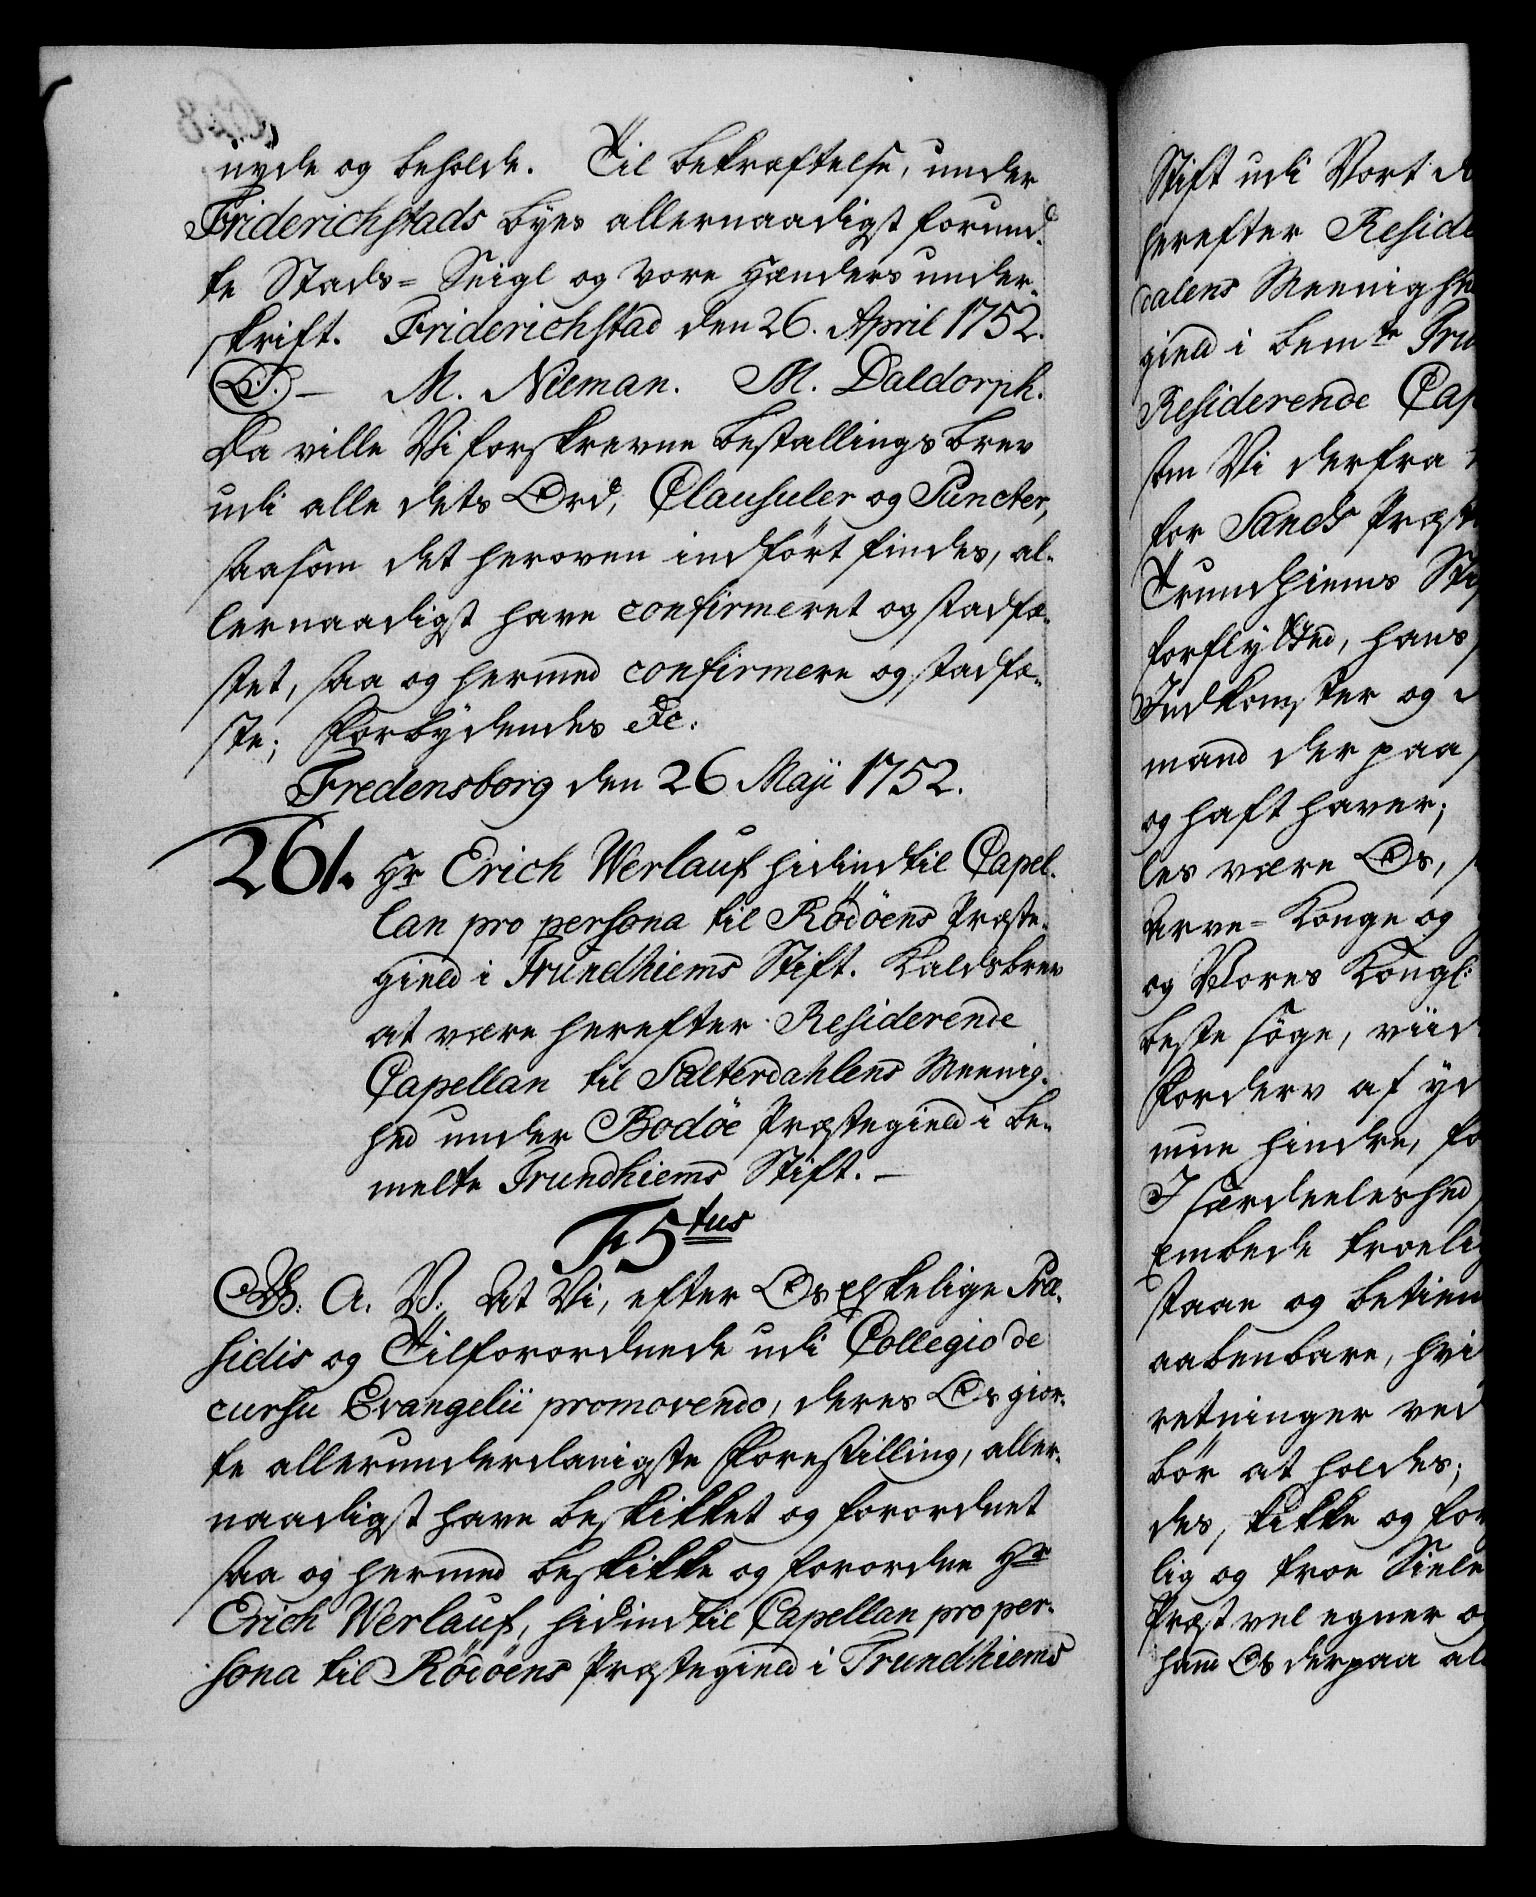 nyde og beholde. Til bekræftelse, under
Friderichstads byes allernaadigst forund-
te Stads- Seigl og vore hænders under-
skrift. Friderichstad den 26. April 1752.
M. Nieman. M. Daldorph.
Da ville Vi forskrevne bestallings brev
udi alle dets Ord, Clausuler og Puncter,
saasom det heroven indført findes, al-
lernaadigst have confirmeret og stadfæ-
stet, saa og hermed confirmere og stadfæ-
ste; Forbydendes &c:
Fredensborg den 26 Maji 1752.
261. Hr Erich Werlauf hidindtil Capel-
lan pro persona til Rödöens Præste-
gield i Trundhiems Stift. Kaldsbrev
at være herefter Residerende
Capellan til Salterdahlens Meenig-
hed under Bodöe Præstegield i be-
melte Trundhiems Stift. -
F 5tus
G. A. V: At Vi, efter Os Elskelige Præ-
sidis og Tilforordnede udi Collegio de
cursu Evangelii promovendo, deres Os gior-
te allerunderdanigste Forestilling, aller-
naadigst have beskikket og forordnet
saa og hermed beskikke og forordne Hr
Erich Werlauf, hidindtil Capellan pro per-
sona til Rödöens Præstegield i Trundhiems
Stift udi Vort
herefter Reside
dalens Meenighe
gield i bemte Tru
Residerende Cap
som Vi derfra
for Sands Præste
Trundhiems Sti
forflytted, hans
Indkomster og
mand der paa
og haft haver;
les være Os,
Arve- Konge og
og Vores Kongl:
beste søge, viid
Forderv af yd
mue hindre, fo
I særdeeleshed
Embede troelig
staae og betien
aabenbare, hvi
retninger ved
bör at holdes;
des, skikke og for
lig og troe Siele
Præst vel egner og
hand Os derpaa al